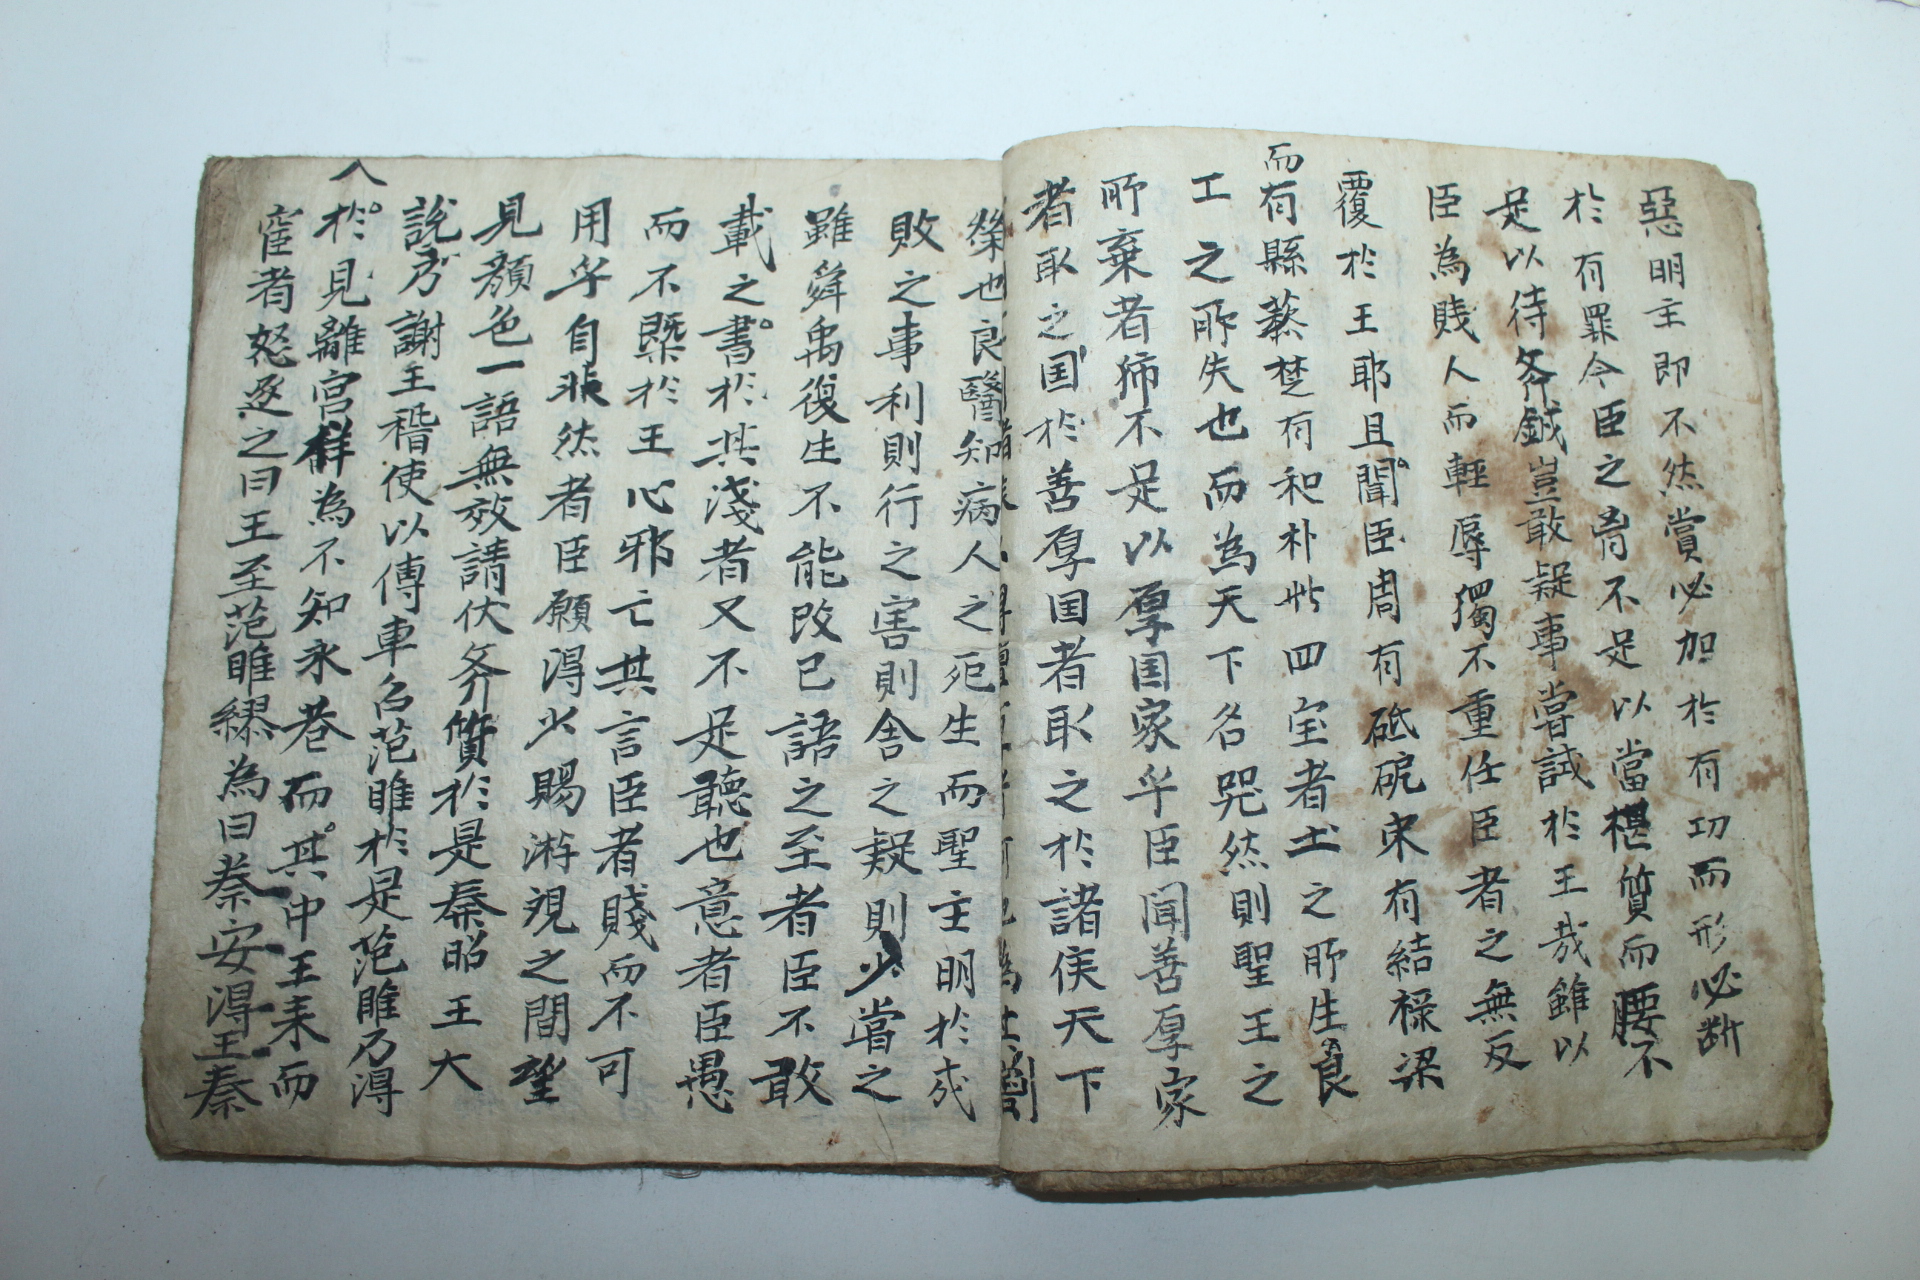 惡明主即不然賞必加於有功而形必断
於有罪今臣之胷不足以當椹質而腰不
足以待斧鉞豈敢疑事嘗試於王哉雖以
臣為賎人而輕辱獨不重任臣者之無反
覆於王耶且聞臣周有砥砨宋有結禄梁
而有縣藜楚有和朴此四宝者土之所生良
工之所失也而為天下名器然則聖王之
所棄者獨不足以厚国家乎臣聞善厚家
者取之国於善厚国者取之於諸侯天下
榮也良醫知病人之死生而聖主明於成
敗之事利則行之害則舍之疑則少嘗之
雖舜禹復生不能改已語之至者臣不敢
載之書於其淺者又不足聽也意者臣愚
而不槩於王心邪亡其言臣者賤而不可
用乎自非然者臣願得少賜游視之間望
見顏色一語無效請伏斧質於是秦昭王大
說乃謝王稽使以傳車召范睢於是范睢乃得
入於見離宮佯為不知永巷而其中王来而
宦者怒逐之曰王至范睢繆為曰秦安得王秦